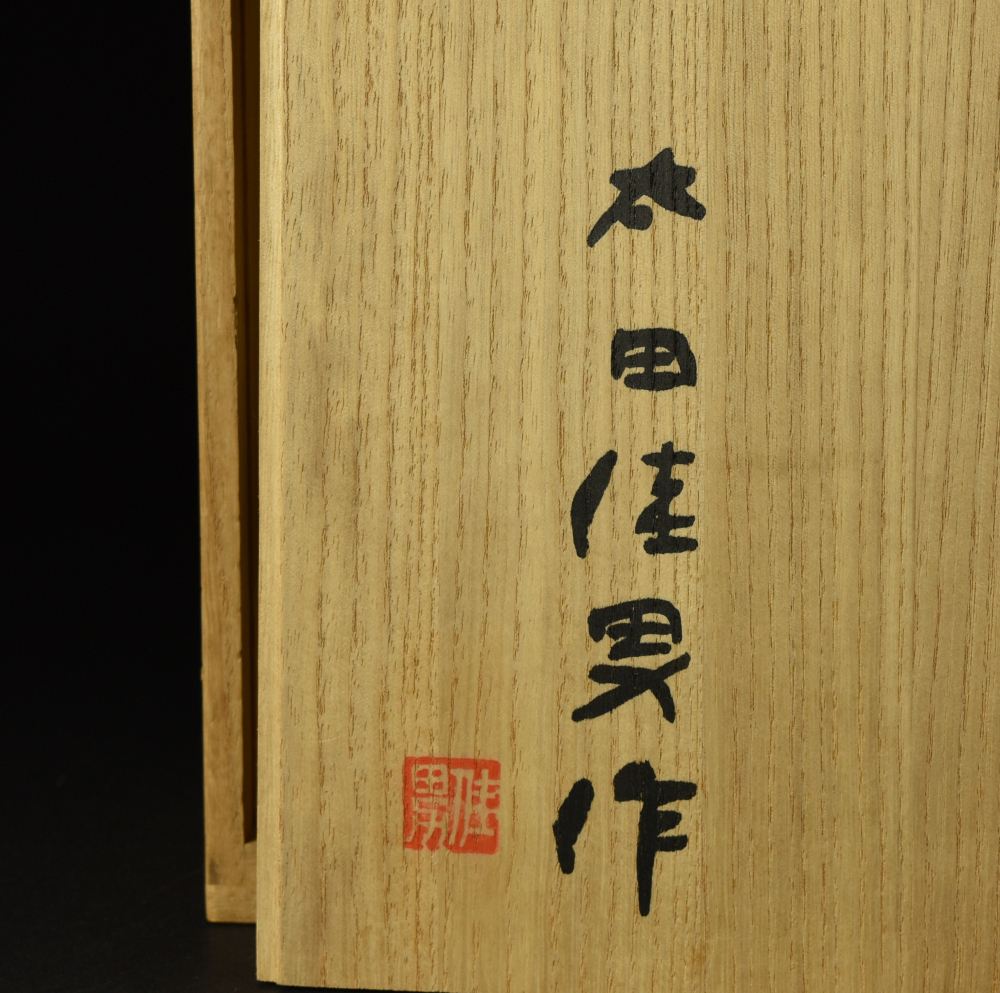 太田佳男作
佳男